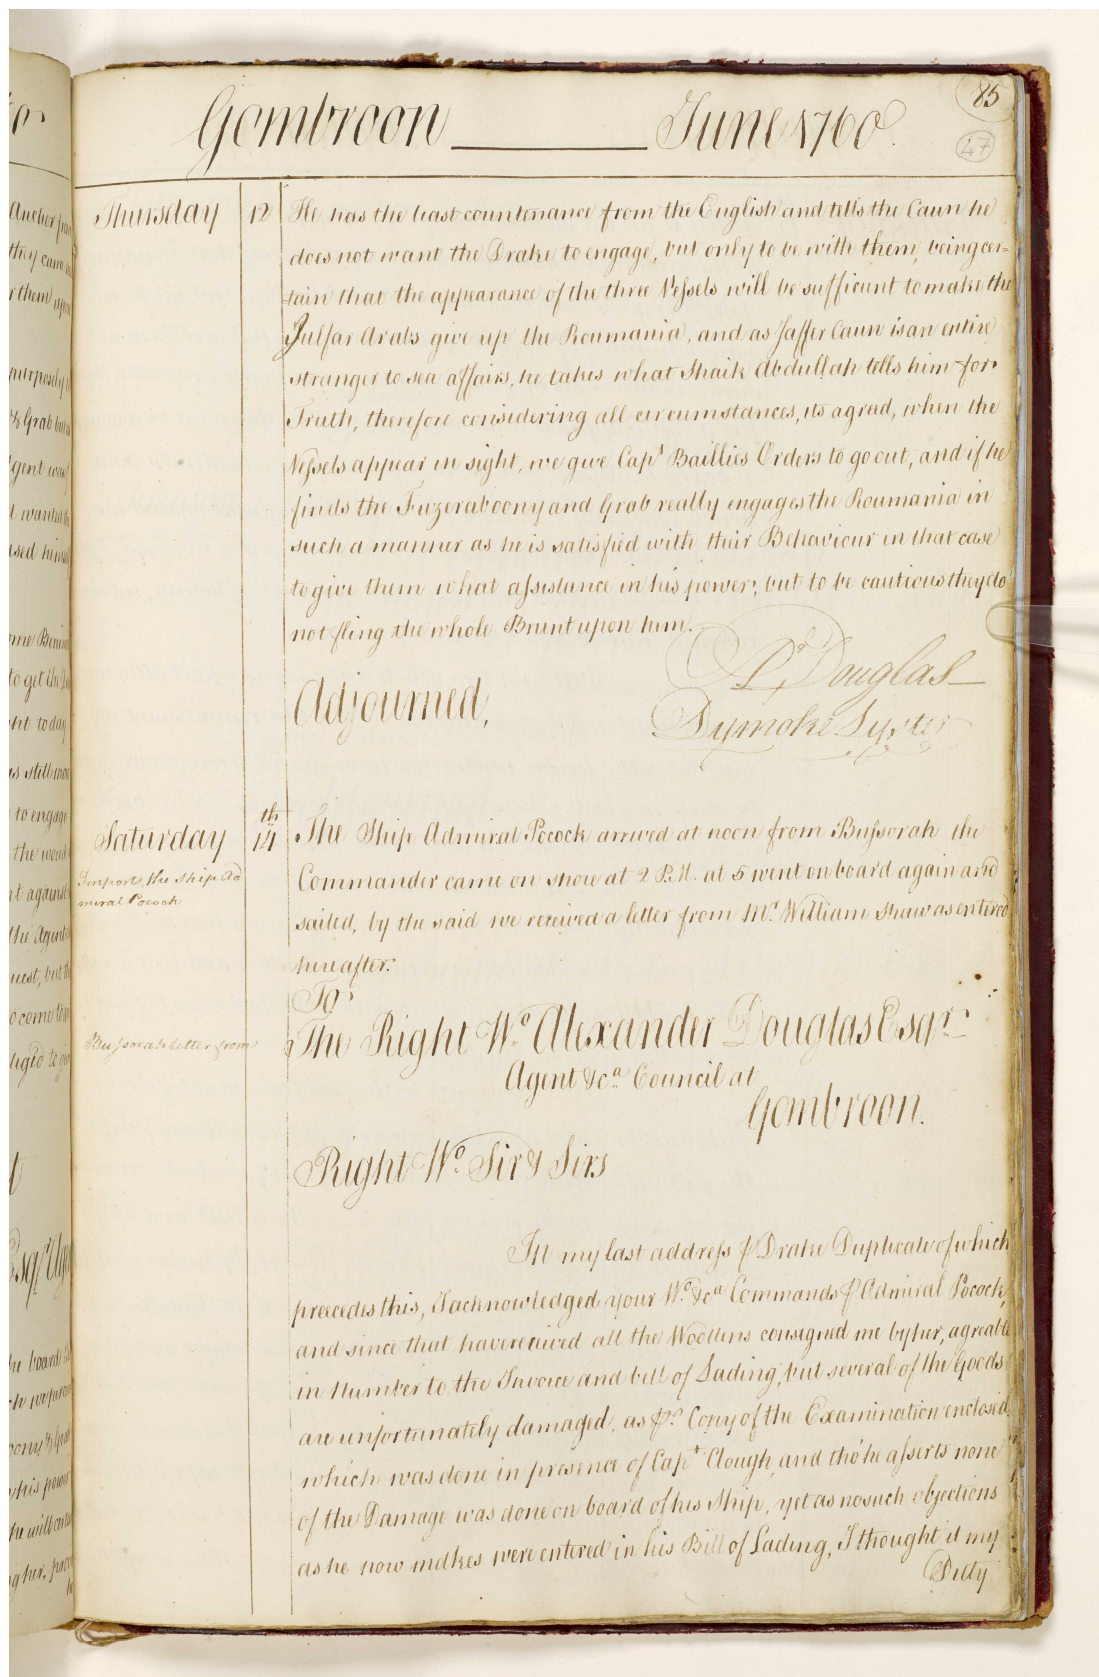 85
47
Gombroon June 1760
Thursday 12 He has the least countenance from the English and tells the Caun he
does not want the Drake to engage, but only to be with them, being cer=
tain that the appearance of the three Vessels will be sufficient to make the
Julfar Arabs give up the Roumania, and as Jaffer Caun is an entire
stranger to sea affairs, he takes what Shaik Abdullah tells him for
Truth, therefore considering all circumstances, its agreed, when the
Vessels appear in sight, we give Capt Baillie's Orders to go out, and if he
finds the Fuzeraboony and Grab really engages the Roumania in
such a manner as he is satisfied with their Behaviour in that case
to give them what assistance in his power; but to be cautious they do
not fling the whole Brunt upon him.
Ar Douglas
Adjourned,
Dymoke Lyster
Saturday 14th The Ship Admiral Pocock arrived at noon from Bussorah the
Imports the Ship Ad
miral Pocock
Commander came on shore at 2 P.M. at 5 went on board again and
sailed, by the said we received a letter from Mr. William Shaw as entered
hereafter.
To
Bussorah letter from
The Right Wo. Alexander Douglas Esqr.
Agent &ca. Council at
Gombroon.
Right Wo. Sir & Sirs
In my last address ⅌ Drake Duplicate of which
precedes this, I acknowledged your Wo. &ca Commands ⅌ Admiral Pocock,
and since that have received all the Woollens consigned me by her, agreable
in Number to the Invoice and bill of Lading, but several of the Goods
are unfortunately damaged, as ⅌r. Copy of the Examination enclosed,
which was done in presence of Capt Clough, and tho' he asserts none
of the Damage was done on board of his Ship, yet as no such objections
as he now makes were entered in his Bill of Lading, I thought it my
Duty